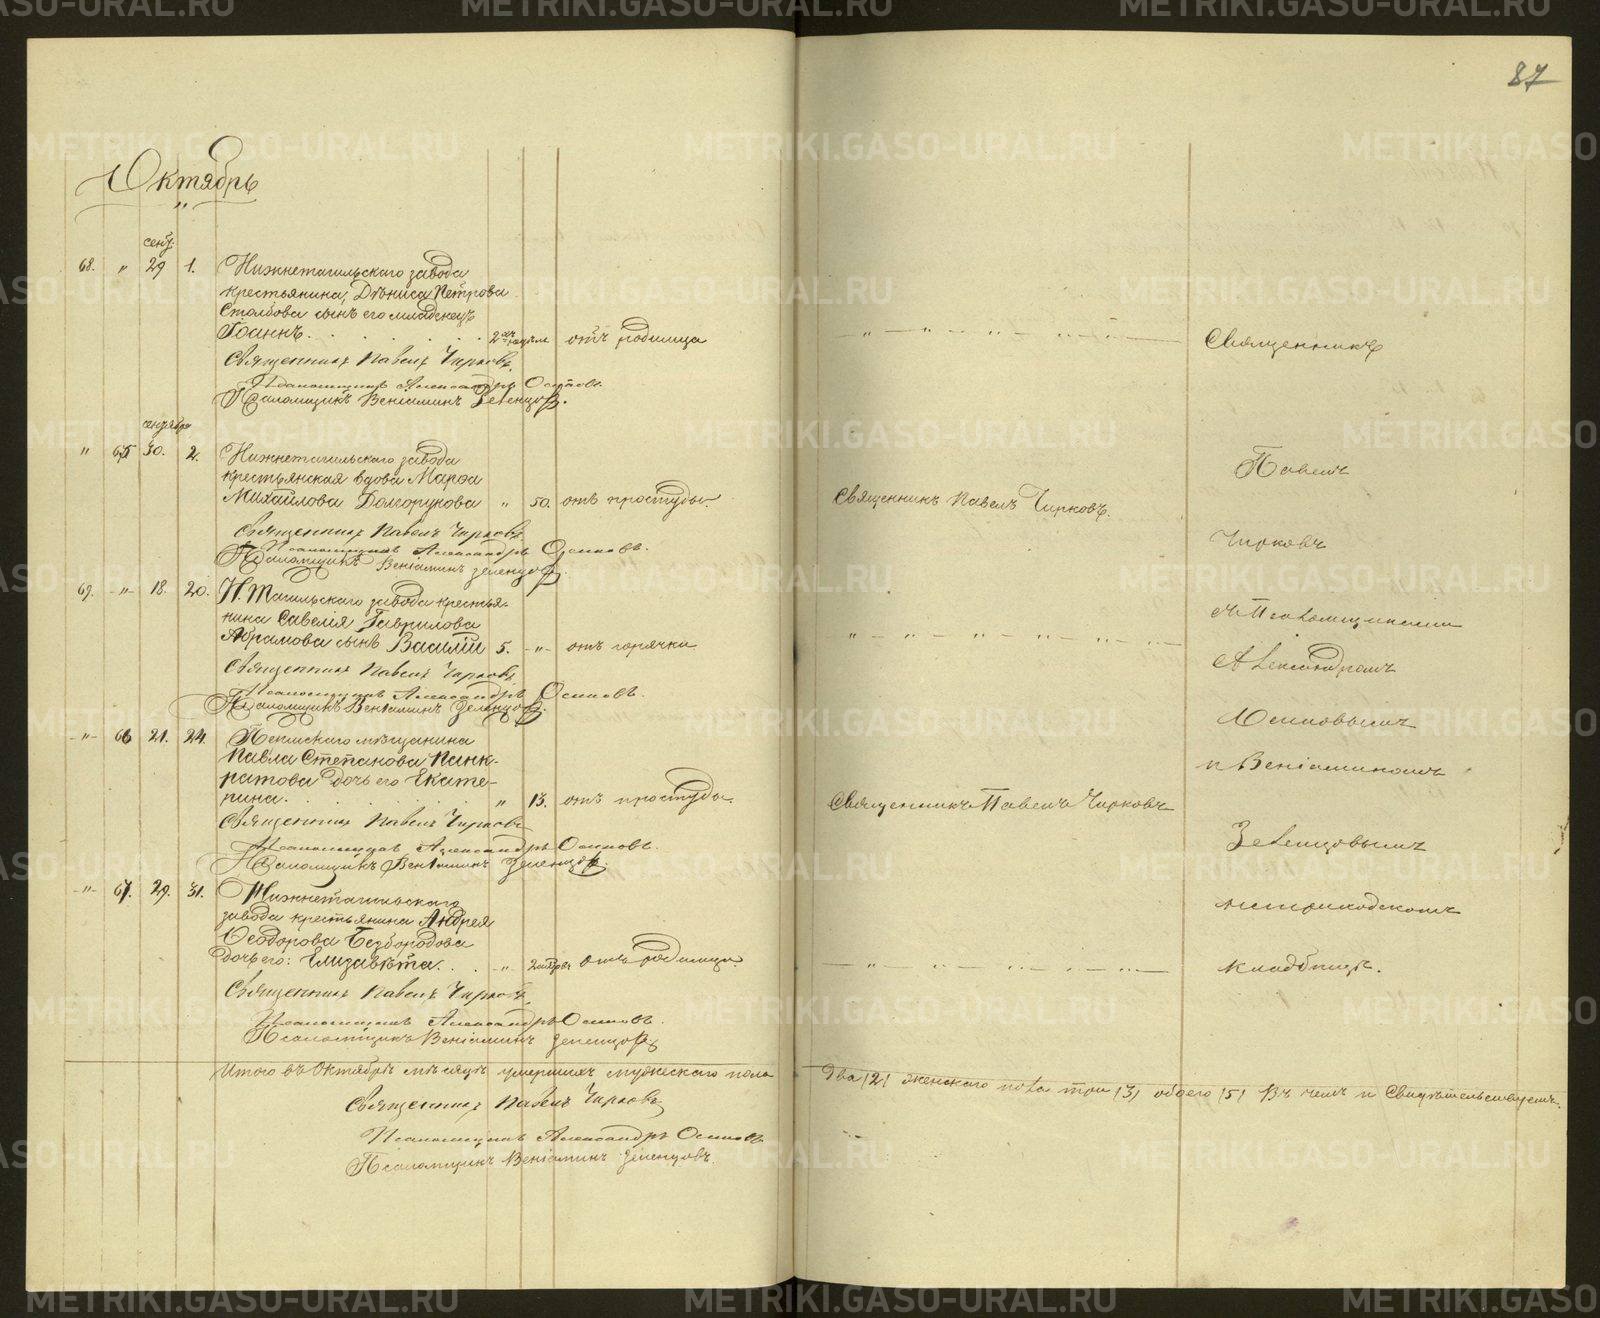 87
Октябрь
сент.
68. " 29 1. Нижнетагильскаго завода
крестьянина, Дениса Петрова
Столбова сынъ его младенецъ
Іоаннъ. 2хъ недели отъ родимца
Священникъ Павелъ Чирковъ.
Псаломщикъ Александръ Осиповъ.
Псаломщикъ Веніаминъ Зеленцовъ.
сентября
" 65 30. 2. Нижнетагильскаго завода
крестьянская вдова Марѳа
Михайлова Долгорукова " 50. отъ простуды.
Священникъ Павелъ Чирковъ
Псаломщикъ Александръ Осиповъ.
Псаломщикъ Веніаминъ Зеленцовъ.
69. -"- 18. 20. Н. Тагильскаго завода крестья-
нина Савелія Гаврилова
Абрамова сынъ Василій 5. -"- отъ горячки
Священникъ Павелъ Чирковъ
Псаломщикъ Александръ Осиповъ.
Псаломщикъ Веніаминъ Зеленцовъ.
-"- 66 21. 24. мѣщанина
Павла Степанова Панк-
ратова дочь его Екате-
рина. " 13. отъ простуды.
Священникъ Павелъ Чирковъ
Псаломщикъ Александръ Осиповъ.
Псаломщикъ Веніаминъ Зеленцовъ.
-"- 67. 29. 31. Нижнетагильскаго
завода крестьянина Андрея
Ѳеодорова Безбородова
дочь его: Елизавѣта. -"- отъ родимца.
Священникъ Павелъ Чирковъ.
Псаломщикъ Александръ Осиповъ.
Псаломщикъ Веніаминъ Зеленцовъ
Итого въ Октябрѣ мѣсяцѣ умершихъ мужескаго пола
Священникъ Павелъ Чирковъ
Псаломщикъ Александръ Осиповъ
Псаломщикъ Веніаминъ Зеленцовъ.
Священникъ Павелъ Чирковъ.
Священникъ Павелъ Чирковъ
Священникъ
Павелъ
Чирковъ
съ Псаломщиками
Александромъ
Осиповымъ
и Веніаминомъ
Зеленцовымъ
на приходскомъ
кладбищѣ.
два /2/ женскаго пола три /3/ обоего /5/ Въ чемъ и Свидѣтельствуемъ.
METRIKI.GASO-URAL.RU